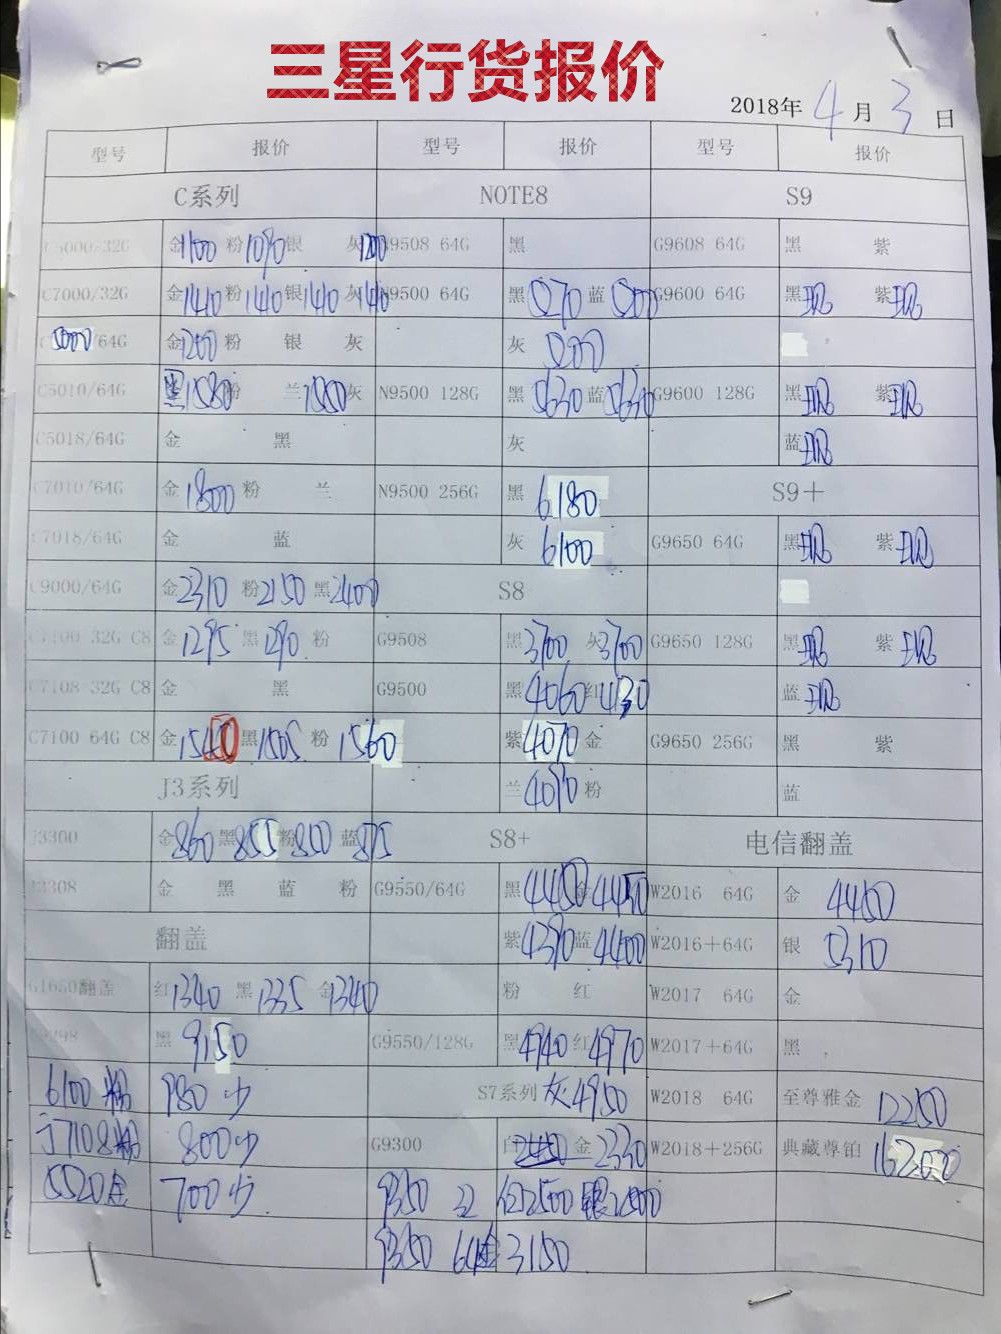 三星行货报价
2018年 4月 3日
型号 报价 型号 报价 型号 报价
C系列 NOTE8 S9
C5000/32G 金1100 粉1090 银 灰 N9508 64G 黑 G9608 64G 黑 紫
C7000/32G 金1410 粉1410 银1410 灰1410 N9500 64G 黑5270 蓝5200 G9600 64G 黑现 紫现
5000/64G 金1200 粉 银 灰 灰5200
C5010/64G 黑1580 粉 兰1550 灰 N9500 128G 黑5630 蓝5630 G9600 128G 黑现 紫现
C5018/64G 金 黑 灰 蓝现
C7010/64G 金1800 粉 兰 N9500 256G 黑6180 S9+
C7018/64G 金 蓝 灰6100 G9650 64G 黑现 紫现
C9000/64G 金2310 粉2150 黑2400 S8
C7100 32G C8 金1295 黑1290 粉 G9508 黑3700 灰3700 G9650 128G 黑现 紫现
C7108 32G C8 金 黑 G9500 黑4060 红4130 蓝现
C7100 64G C8 金1540 黑1505 粉1560 紫4070 金 G9650 256G 黑 紫
J3系列 兰4090 粉 蓝
J3300 金860 黑855 粉850 蓝875 S8+ 电信翻盖
J3308 金 黑 蓝 粉 G9550/64G 黑4450 金4450 W2016 64G 金4450
翻盖 紫4390 蓝4400 W2016+64G 银5310
G1650翻盖 红1340 黑1335 金1340 粉 红 W2017 64G 金
黑9150 G9550/128G 黑4940 红4970 W2017+64G 黑
6100粉 980少 S7系列 灰4950 W2018 64G 至尊雅金 12250
J7108粉 800少 G9300 白 金2330 W2018+256G 典藏尊铂 16200
5520金 700少 9350 2500 银2500
9350 64 3150